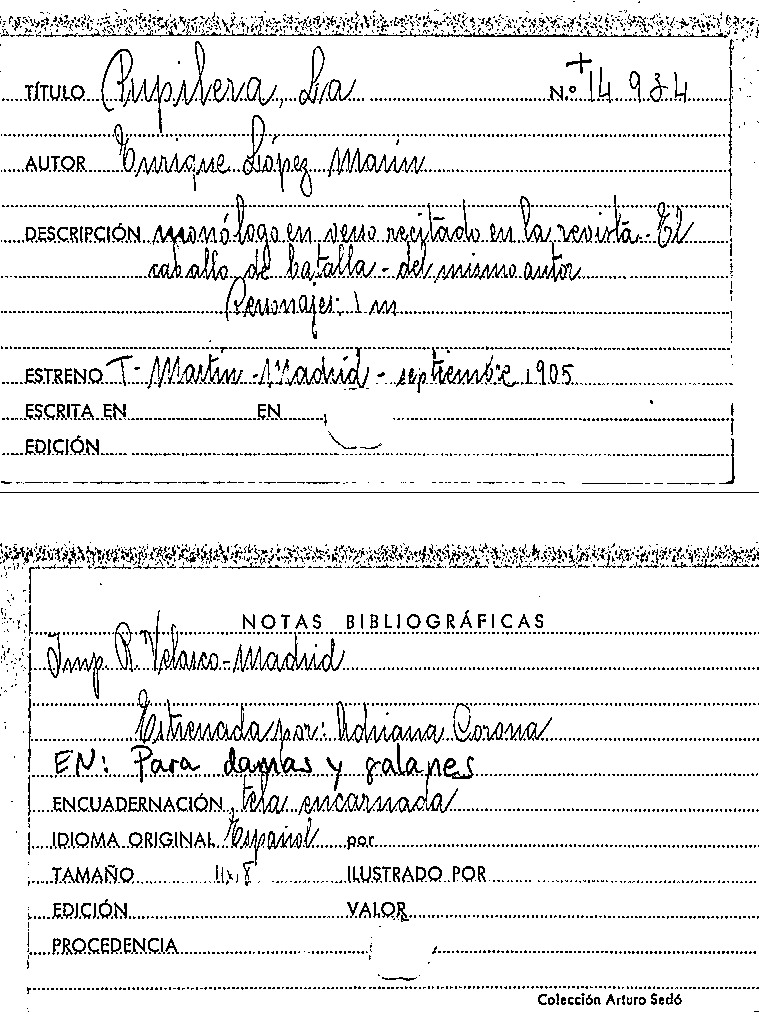 TÍTULO Pupilera, La N.º + 14934
AUTOR Enrique López Marín
DESCRIPCIÓN monólogo en verso recitado en la revista - El
caballo de batalla - del mismo autor
Personajes: 1 m
ESTRENO T- Martín - Madrid - septiembre 1905
ESCRITA EN EN
EDICIÓN
NOTAS BIBLIOGRÁFICAS
Imp. R. Velasco - Madrid
Estrenada por: Adriana Corona
EN: Para damas y galanes
ENCUADERNACIÓN tela encarnada
IDIOMA ORIGINAL Español por
TAMAÑO 11x8 ILUSTRADO POR
EDICIÓN VALOR
PROCEDENCIA
Colección Arturo Sedó